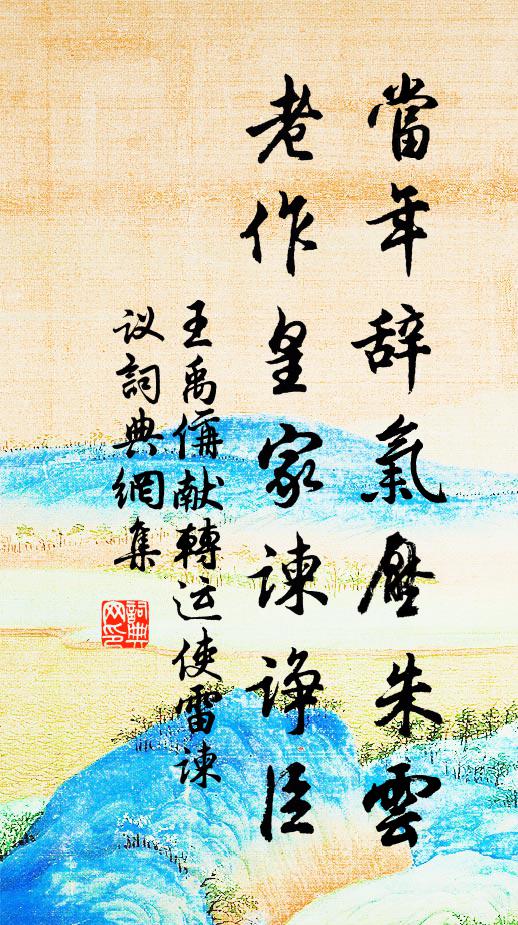 當年辞氣壓朱雲
老作皇家諫諍臣
王禹偁献轉运使雷諫
议詞典網集
詞典
网印